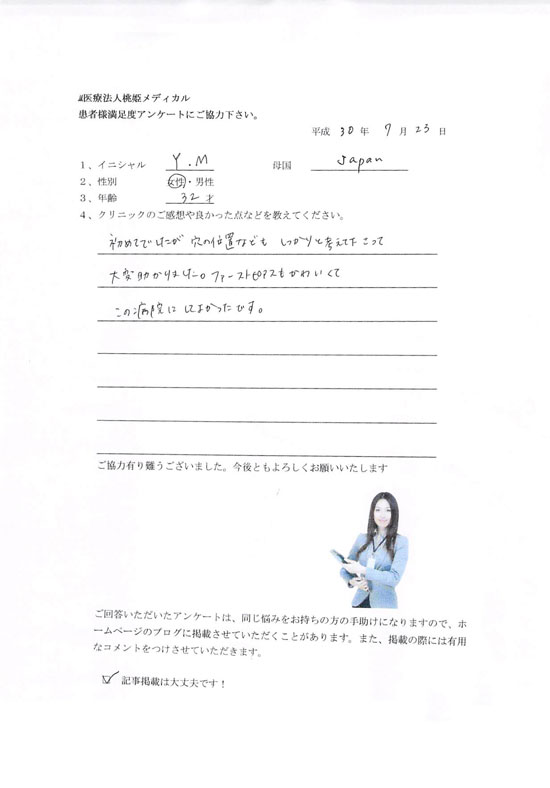 医療法人桃姫メディカル
患者様満足度アンケートにご協力下さい。
平成 30 年 7 月 23 日
1、イニシャル Y.M 母国 Japan
2、性別 女性・男性
3、年齢 32 才
4、クリニックのご感想や良かった点などを教えてください。
初めてでしたが 穴の位置なども しっかりと考えて下さって
大変助かりました。ファーストピアスもかわいくて
この病院にしてよかったです。
ご協力有り難うございました。今後ともよろしくお願いいたします
ご回答いただいたアンケートは、同じ悩みをお持ちの方の手助けになりますので、ホ
ームページのブログに掲載させていただくことがあります。また、掲載の際には有用
なコメントをつけさせていただきます。
記事掲載は大丈夫です！